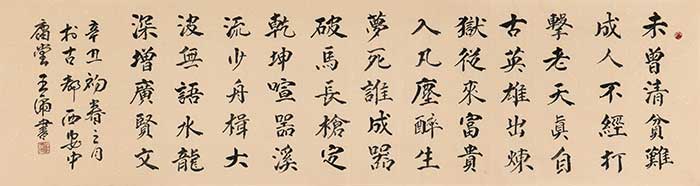 未曾清貧難
成人不經打
擊老天眞自
古英雄出煉
獄從來富貴
入凡塵醉生
夢死誰成器
破馬長槍定
乾坤喧器溪
流少舟楫大
波無語水龍
深增廣賢文
辛丑初春之月
於古都西安中
王書